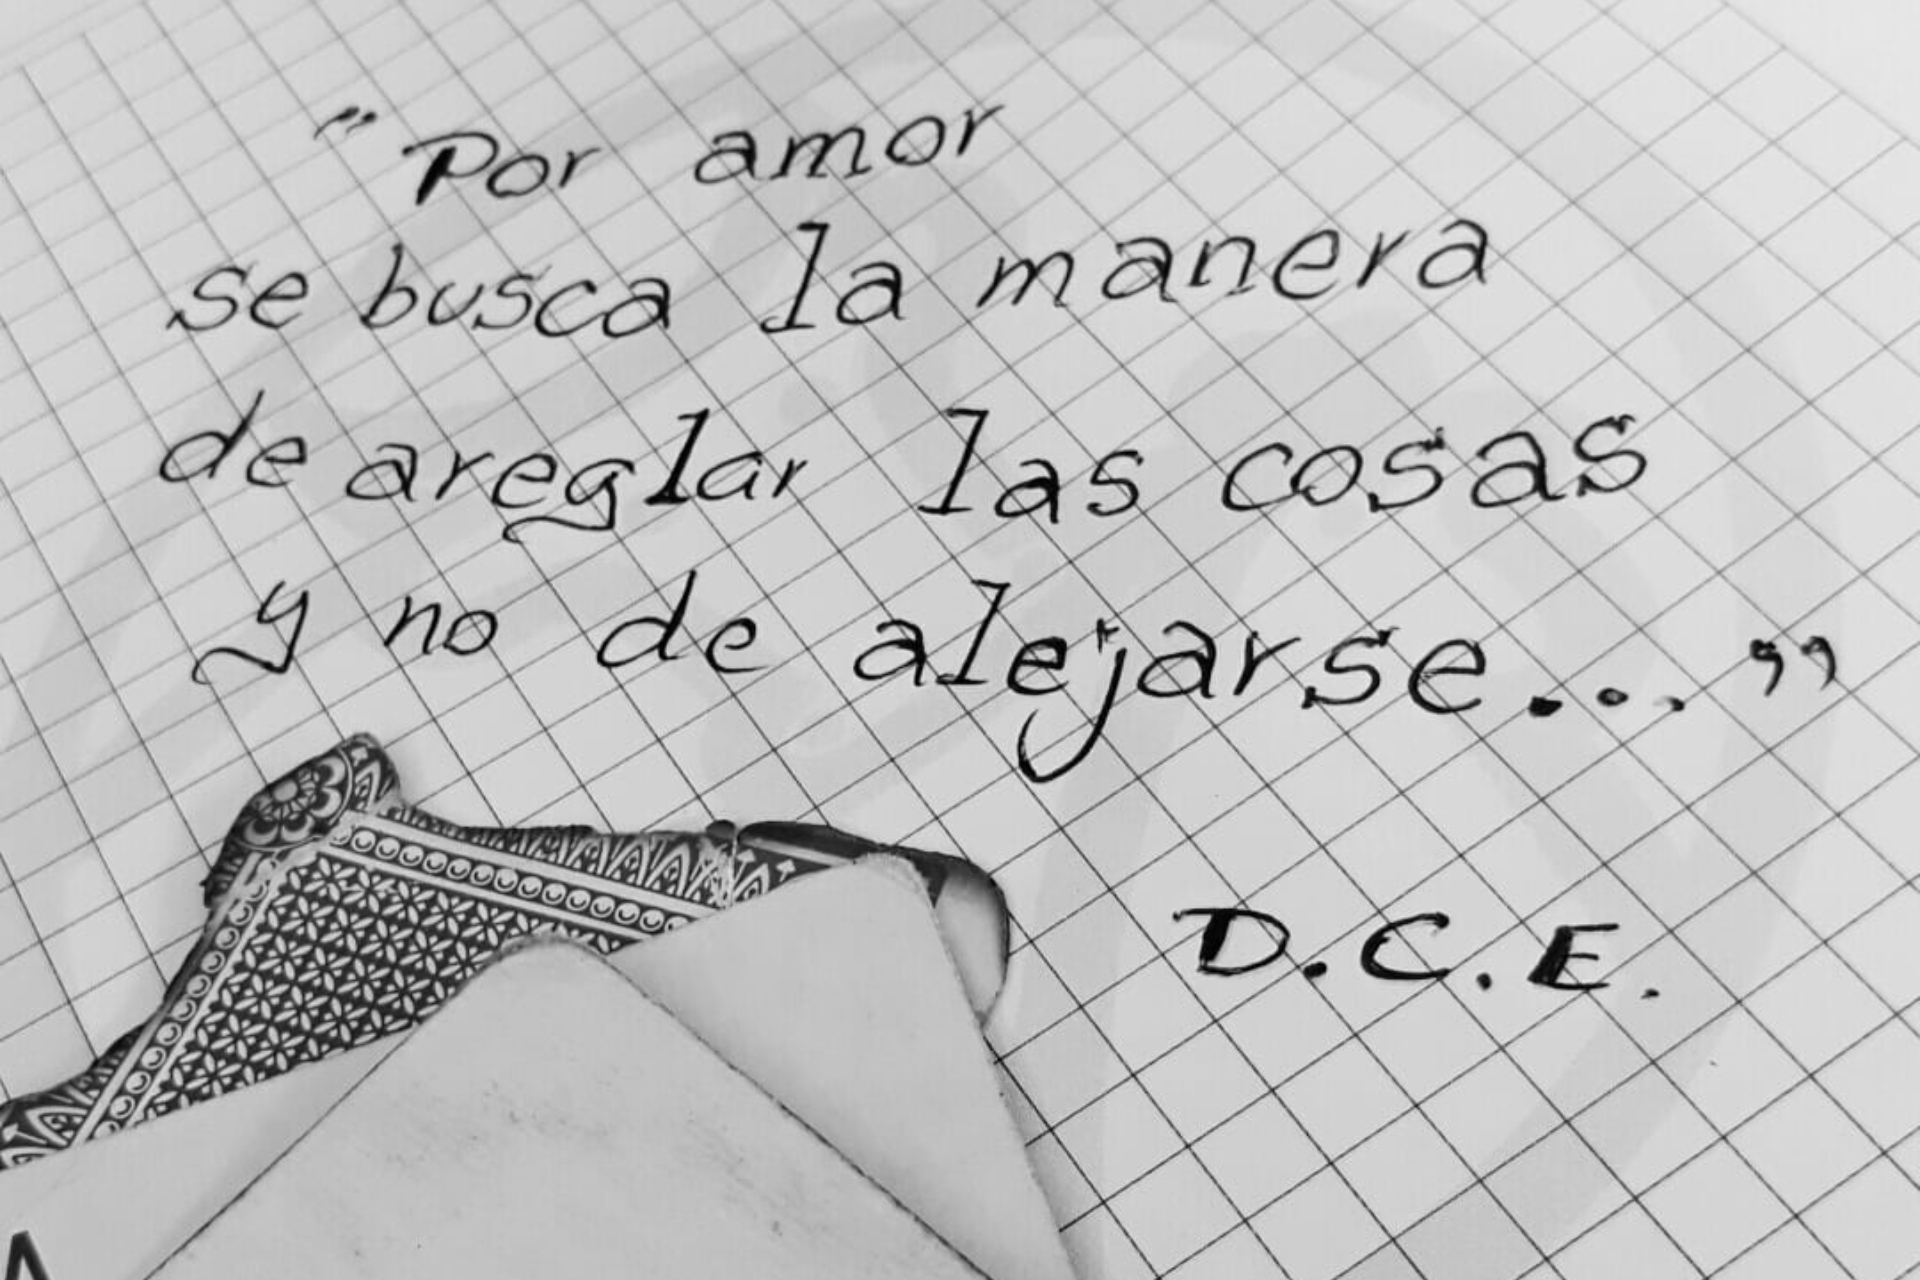 "Por amor
se busca la manera
de areglar las cosas
y no de alejarse..."
D.C.E.
A